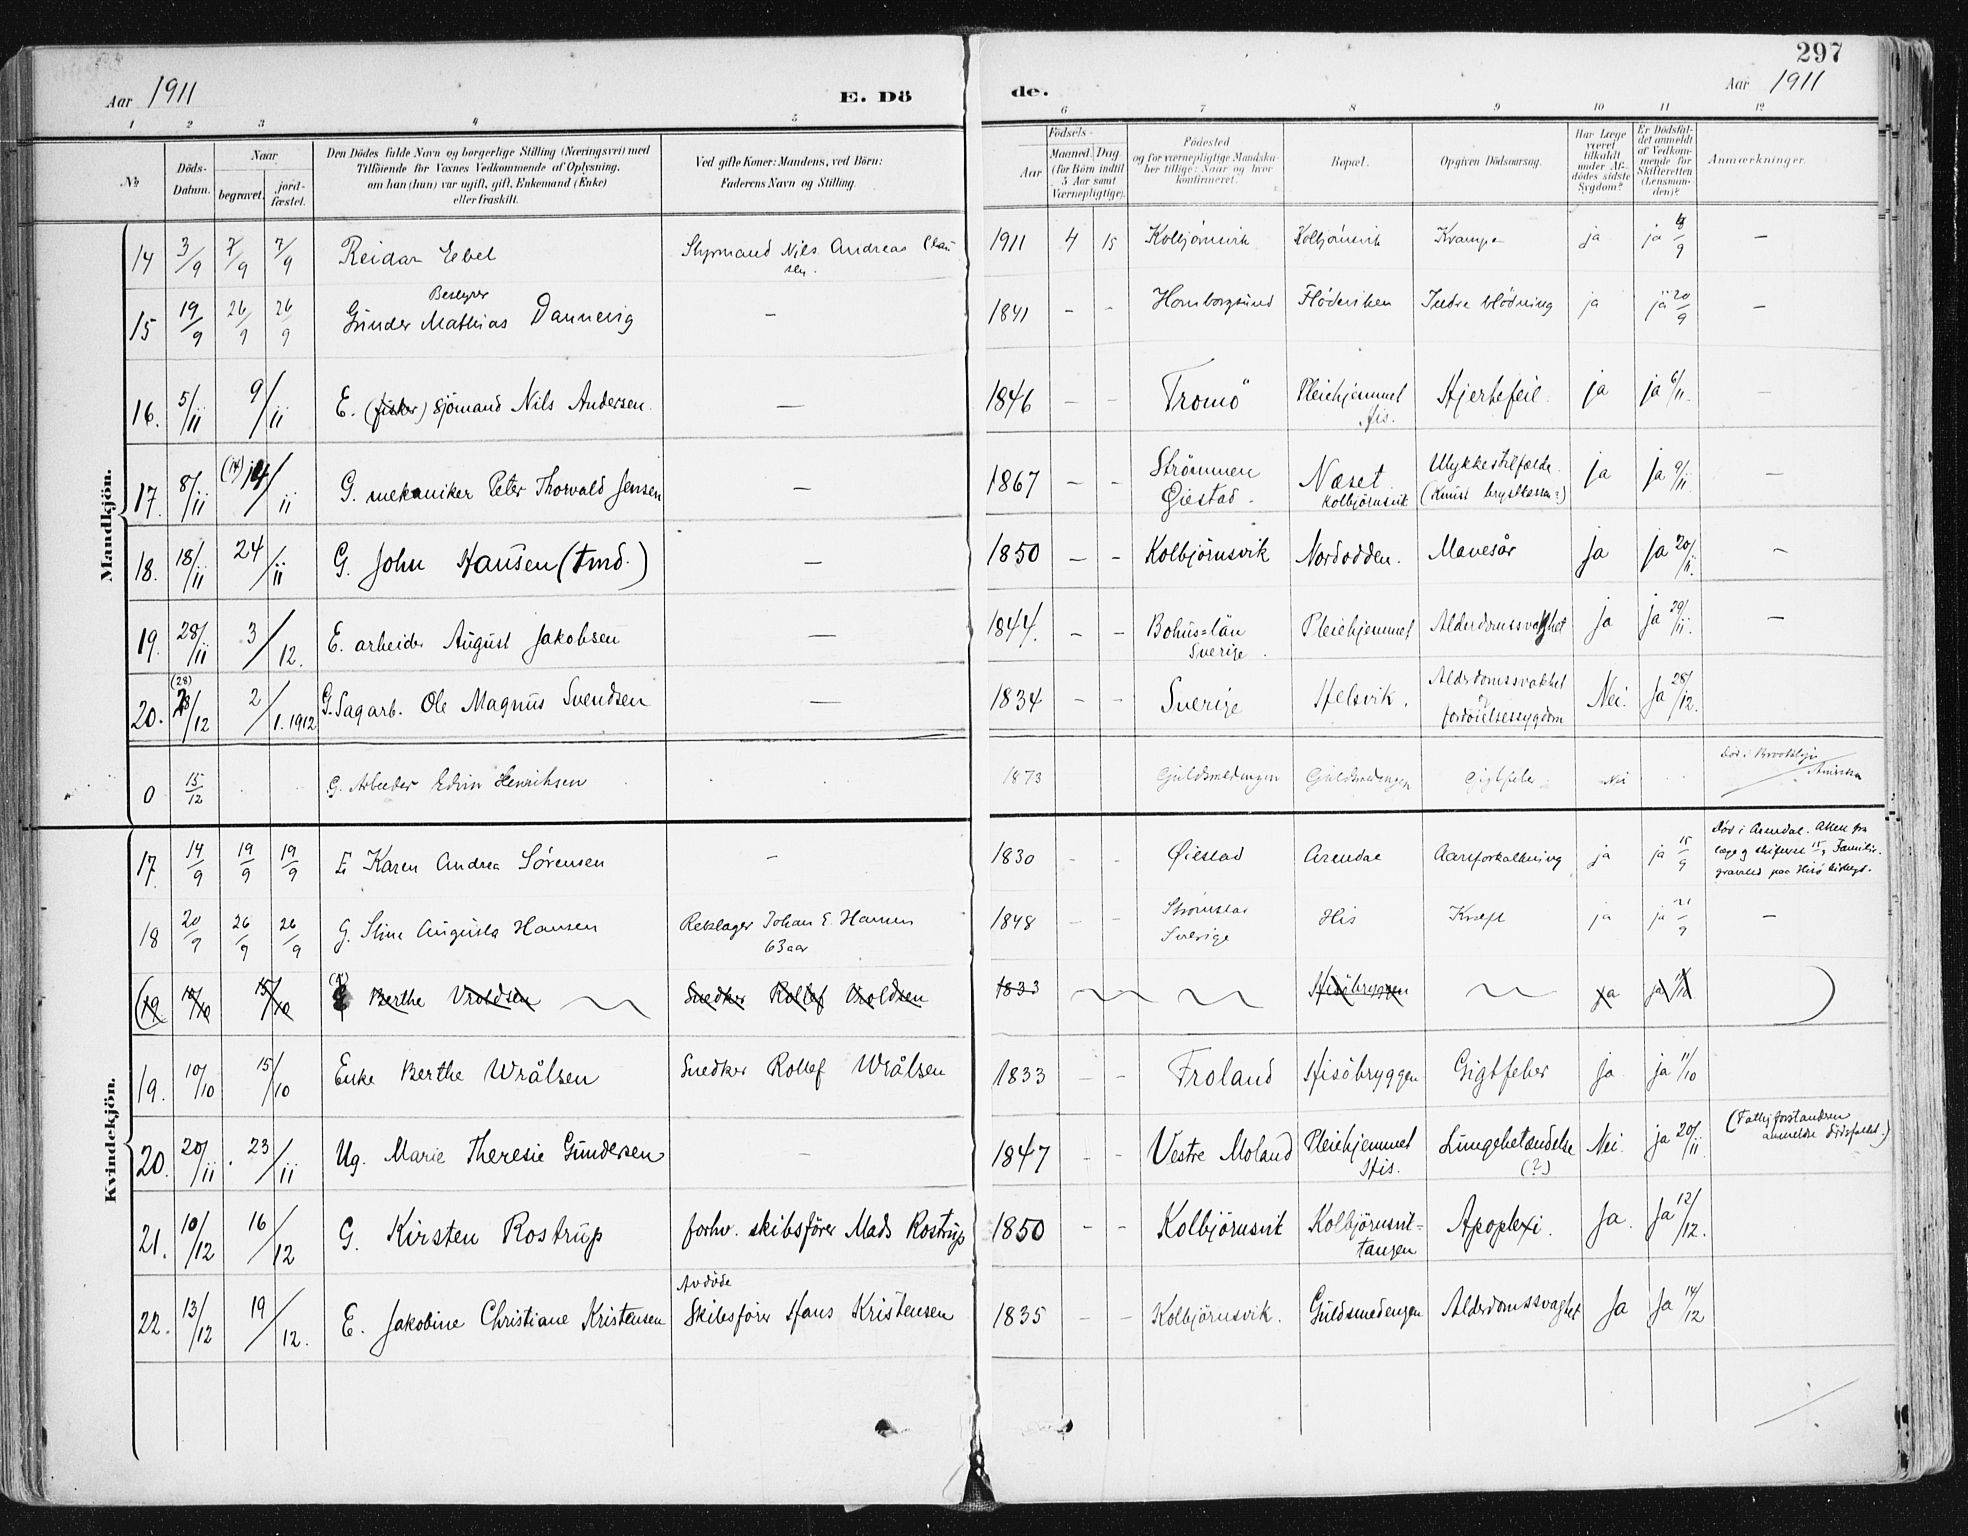 297
Aar 1911
E. Dö
de.
Aar 1911
1 2 3 4 5 6 7 8 9 10 11 12
№
Döds-Datum.
Naar
begravet.
jord-fæstet.
Den Dödes fulde Navn og borgerlige Stilling (Næringsvei) med
Tilföiende for Voxnes Vedkommende af Oplysning,
om han (hun) var ugift, gift, Enkemand (Enke)
eller fraskilt.
Ved gifte Koner: Mandens, ved Börn:
Faderens Navn og Stilling.
Födsels-
Aar
Maaned. Dag
(for Börn indtil
5 Aar samt
Værnepligtige).
Födested
og for værnepligtige Mandska-
ber tillige: Naar og hvor
konfirmeret.
Bopæl.
Opgiven Dödsaarsag.
Har Læge
været
tilkaldt
under Af-
dödes sidste
Sygdom?
Er Dödsfal-
det anmeldt
af Vedkom-
mende for
Skifteretten
(Lensman-
den)?
Anmærkninger.
Mandkjön.
14 3/9 7/9 7/9 Reidar Ebel Styrmand Nils Andreas Clau
sen. 1911 4 15 Kolbjörnsvik Kolbjörnsvik Krampe ja ja /9 —
15 19/9 26/9 26/9 Bestyrer
Gunder Mathias Dannevig — 1841 - - Homborgsund Flödeviken Indre blödning ja ja 20/9 —
16. 5/11 9/11 E. (fisker) sjömand Nils Andersen. — 1846 — — Tromö Pleiehjemmet
His. Hjertefeil. ja ja 6/11. —
17. 8/11 (14) 14/11 G. mekaniker Peter Thorvald Jensen — 1867 — — Strömmen
Öiestad. Næset
Kolbjörnsvik Ulykkestilfælde.
(Knust brystkasse?) ja ja 9/11. —
18. 18/11 24/11 G. John Hansen (tmd.) — 1850 — — Kolbjörnsvik Nordodden. Mavesår ja ja 20/11. —
19. 28/11 3/12. E. arbeider August Jakobsen — 1844. — — Bohus=län
Sverige. Pleiehjemmet Alderdomssvaghet ja ja 29/11. —
20. (28) 28/12 2/1. 1912 G. Sagarb. Ole Magnus Svendsen — 1834 — — Sverige Helsvik. Alderdomssvakhet
og
fordöielsessygdom Nei. Ja 28/12.
0 15/12 G. Arbeider Edvin Henriksen 1873 Guldsmedengen Guldsmedengen Gigtfeber Nei Död i Brooklyn
Amerika
Kvindekjön.
17 14/9 19/9 19/9 E Karen Andrea Sörensen — 1830 - - Öiestad Arendal Aareforkalkning ja ja 15/9 Död i Arendal. Attest fra
læge og skifteret 15/9 Familie-
gravsted paa Hisö kirkegd.
18 20/9 26/9 26/9 G. Stine Augusta Hansen Rebslager Johan E. Hansen
63 aar 1848 - - Strömstad
Sverige His Kræft ja ja 21/9 —
(19 10/10 15/10 Berthe Vroldsen Snedker Rollef Vroldsen 1833 Hisöbryggen ja ja 11/10 )
19. 10/10 15/10 Enke Berthe Wrålsen Snedker Rollef Wrålsen 1833 - - Froland Hisöbryggen Gigtfeber Ja ja 11/10
20. 20/11 23/11 Ug. Marie Theresie Gundersen — 1847 - - Vestre Moland Pleiehjemmet
His. Lungebetændelse
(?) Nei. ja 20/11. (Fattigforstanderen
anmeldte dödsfaldet.)
21. 10/12 16/12 G. Kirsten Rostrup forhv. skibsförer Mads Rostrup 1850 - - Kolbjörnsvik Kolbjörnsvik-
tangen Apoplexi. Ja. Ja 12/12.
22. 13/12 19/12. E. Jakobine Christiane Kristensen Avdöde
Skibsförer Hans Kristensen 1835 - - Kolbjörnsvik. Guldsmedengen Alderdomssvaghet Ja Ja 14/12